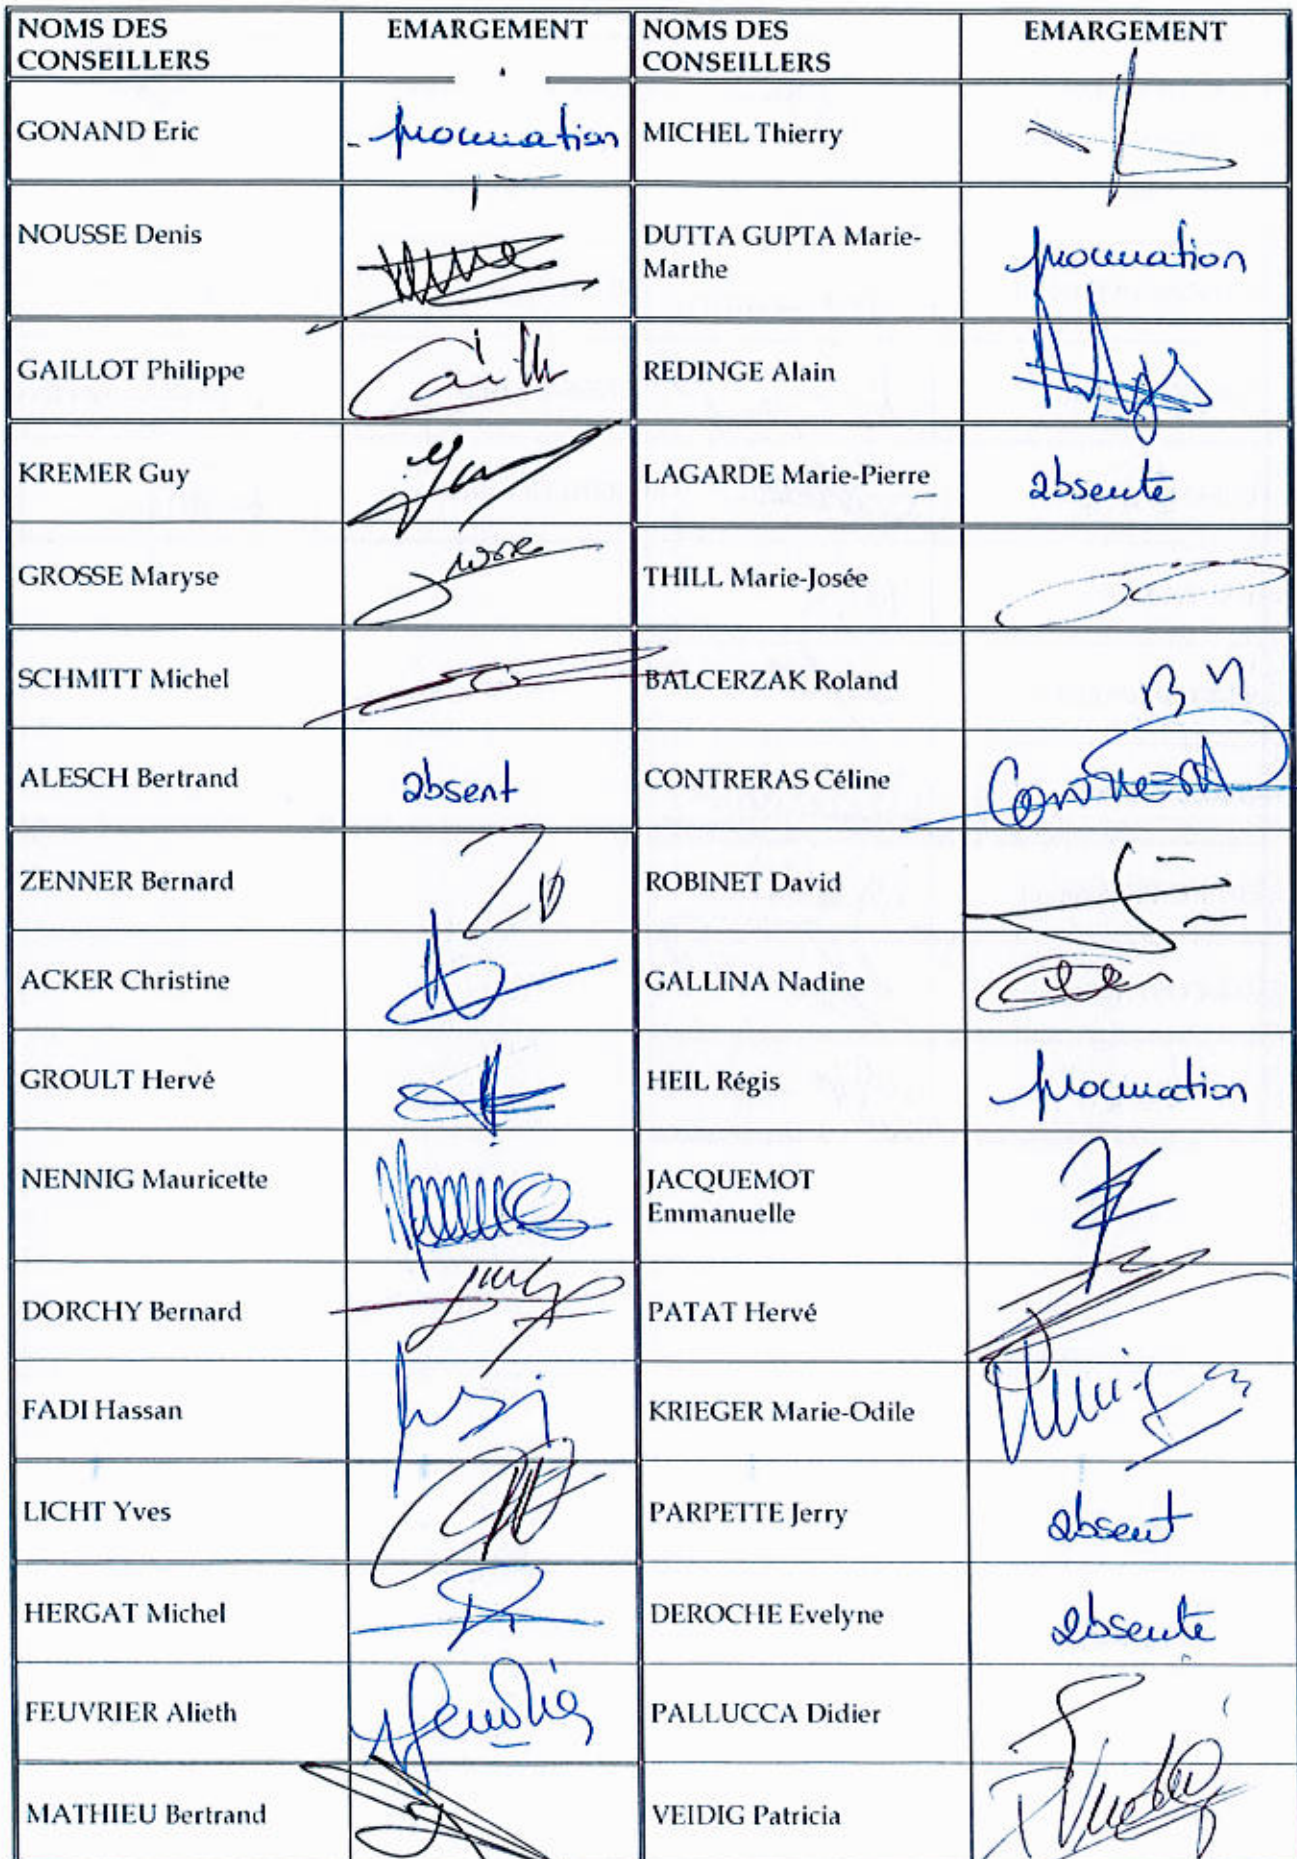 NOMS DES CONSEILLERS EMARGEMENT NOMS DES CONSEILLERS EMARGEMENT
GONAND Eric procuration MICHEL Thierry
NOUSSE Denis DUTTA GUPTA Marie-Marthe procuration
GAILLOT Philippe REDINGE Alain
KREMER Guy LAGARDE Marie-Pierre absente
GROSSE Maryse THILL Marie-Josée
SCHMITT Michel BALCERZAK Roland
ALESCH Bertrand absent CONTRERAS Céline
ZENNER Bernard ROBINET David
ACKER Christine GALLINA Nadine
GROULT Hervé HEIL Régis procuration
NENNIG Mauricette JACQUEMOT Emmanuelle
DORCHY Bernard PATAT Hervé
FADI Hassan KRIEGER Marie-Odile
LICHT Yves PARPETTE Jerry absent
HERGAT Michel DEROCHE Evelyne absente
FEUVRIER Alieth PALLUCCA Didier
MATHIEU Bertrand VEIDIG Patricia